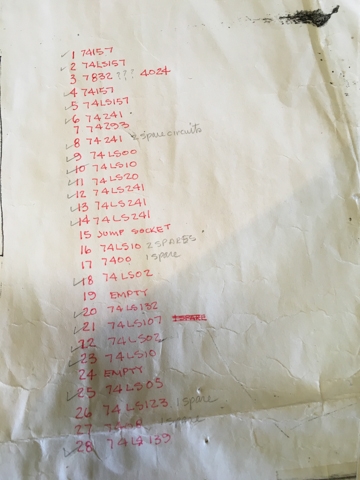 ✓ 1 74157
✓ 2 74LS157
3 7832 ??? 4024
✓ 4 74157
✓ 5 74LS157
✓ 6 74241
7 74293
✓ 8 74241 2 spare circuits
✓ 9 74LS00
✓ 10 74LS10
✓ 11 74LS20
✓ 12 74LS241
✓ 13 74LS241
✓ 14 74LS241
15 JUMP SOCKET
16 74LS10 2 SPARES
17 7400 1 spare
✓ 18 74LS02
19 EMPTY
✓ 20 74LS132
✓ 21 74LS107 1 SPARE
✓ 22 74LS02
✓ 23 74LS10
24 EMPTY
✓ 25 74LS05
26 74LS123 1 spare
27 spare
✓ 28 74LS139